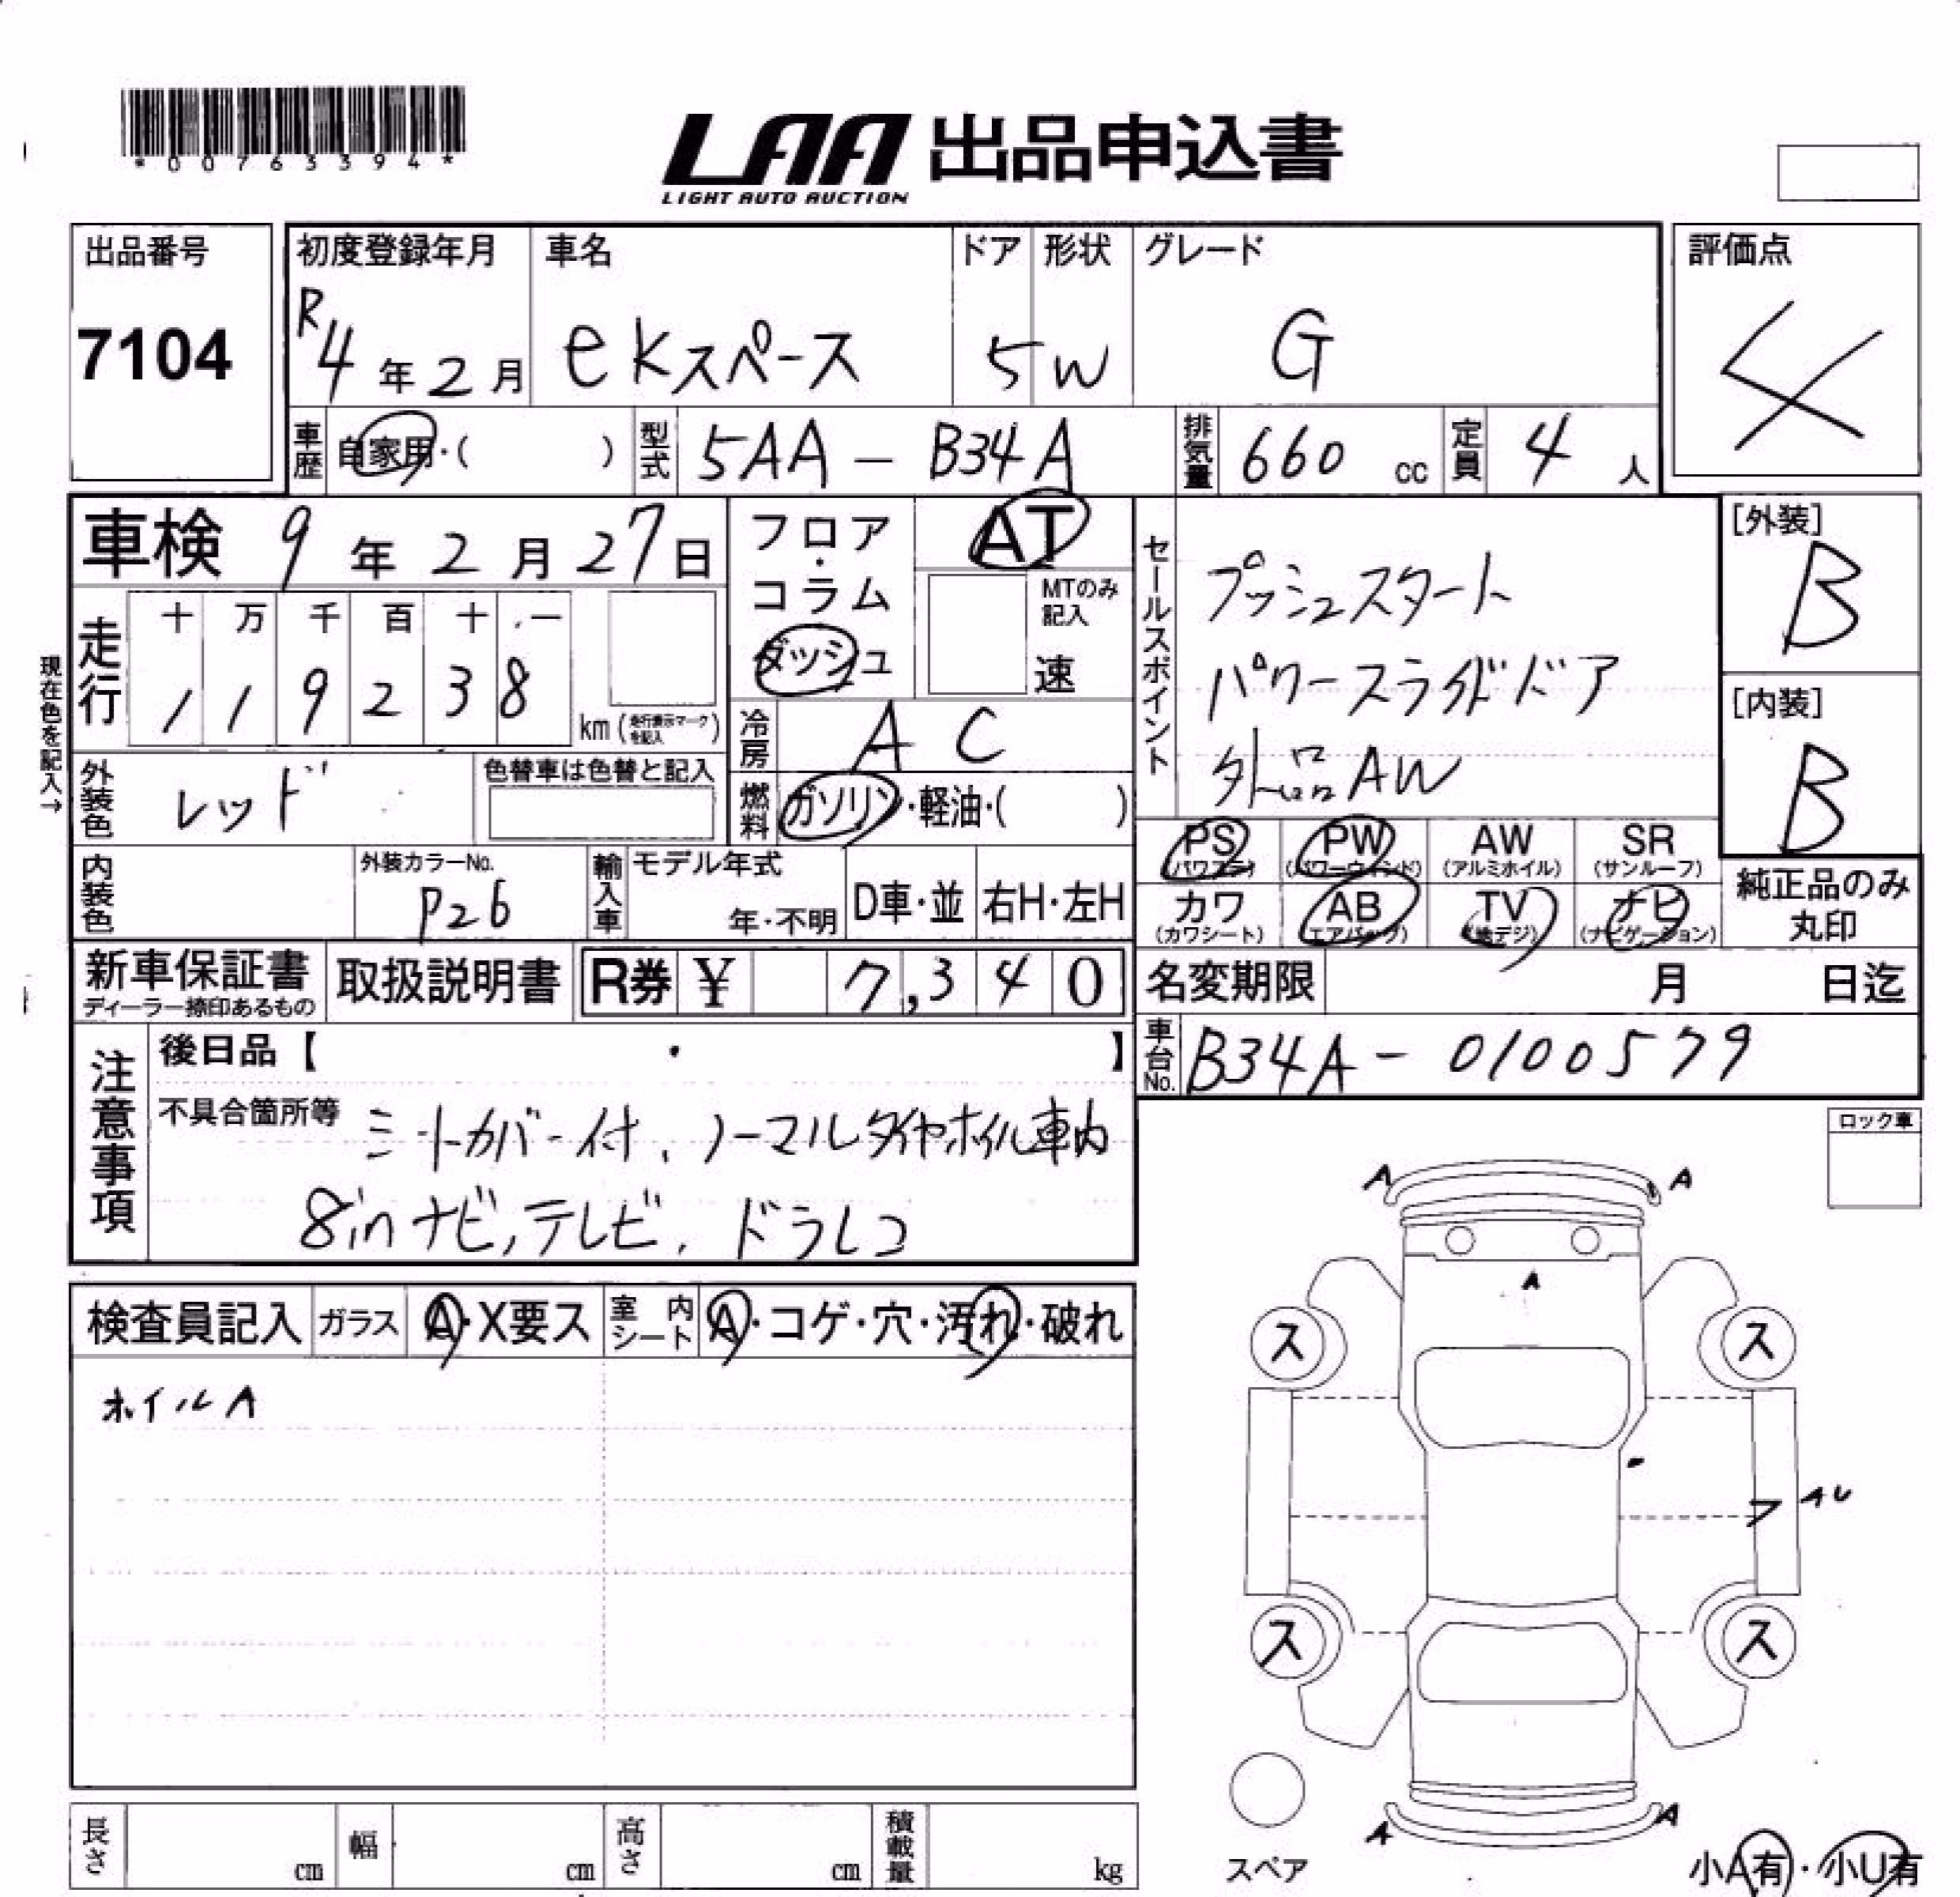 *00763394*
LAA 出品申込書
LIGHT AUTO AUCTION
出品番号 初度登録年月 車名 ドア 形状 グレード 評価点
7104 R4年2月 ekスペース 5 W G 4
車歴 自家用・( ) 型式 5AA-B34A 排気量 660 cc 定員 4人
車検 9年2月27日 フロア・コラム ダッシュ AT
MTのみ記入 速
セールスポイント
プッシュスタート
パワースライドドア
外品AW
[外装] B
[内装] B
現在色を記入→
走行 十 万 千 百 十 一
1 1 9 2 3 8 km (走行表示マークを記入)
冷房 AC
外装色 レッド 色替車は色替と記入
燃料 ガソリン・軽油・( )
PS (パワステ) PW (パワーウィンド) AW (アルミホイル) SR (サンルーフ)
カワ (カワシート) AB (エアバッグ) TV (地デジ) ナビ (ナビゲーション)
純正品のみ丸印
内装色 外装カラーNo. P26 輸入車 モデル年式 年・不明 D車・並 右H・左H
新車保証書 ディーラー捺印あるもの 取扱説明書 R券 ¥ 7,340
名変期限 月 日迄
車台No. B34A-0100579
注意事項
後日品【 ・ 】
不具合箇所等 シートカバー付、ノーマルタイヤホイル車内
8inナビ,テレビ,ドラレコ
ロック車
検査員記入 ガラス A・X要ス 室内シート A・コゲ・穴・汚れ・破れ
ホイルA
A A
A
ス ス
AU
ス ス
A A
スペア
小A有・小U有
長さ cm 幅 cm 高さ cm 積載量 kg